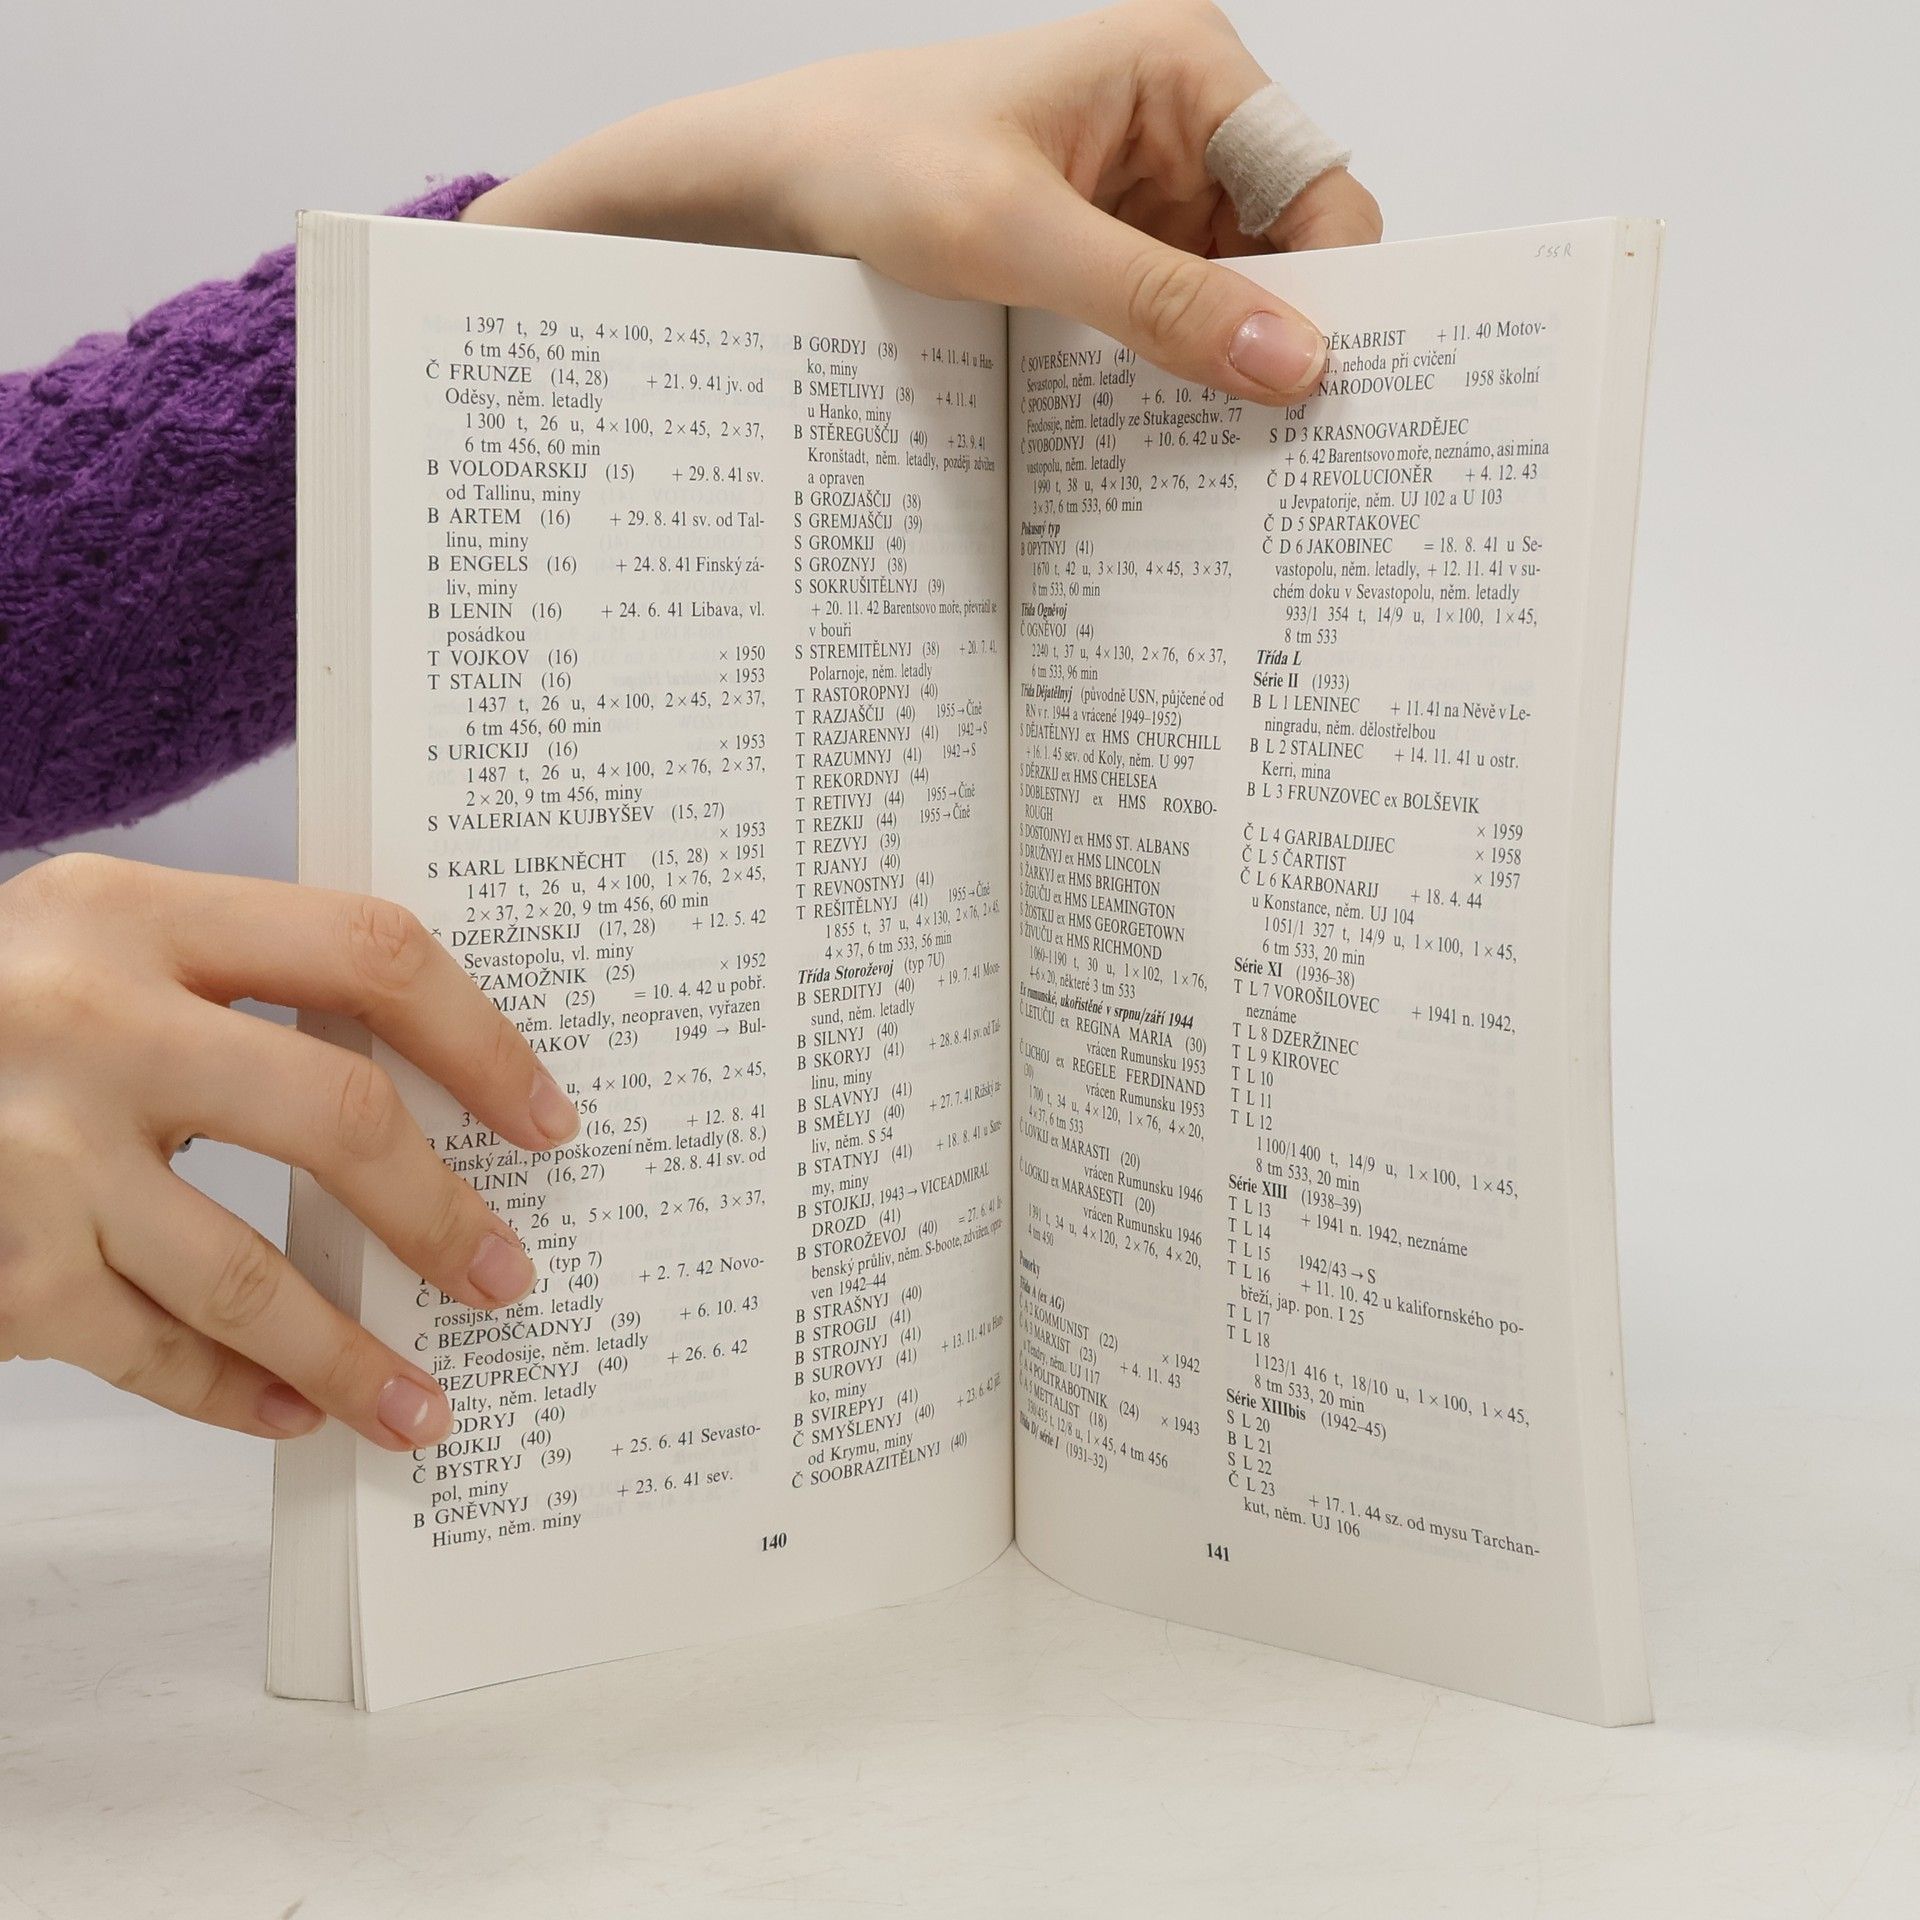 1397 t, 29 u, 4×100, 2×45, 2×37,
6 tm 456, 60 min
Č FRUNZE (14, 28) + 21. 9. 41 jv. od
Oděsy, něm. letadly
1300 t, 26 u, 4×100, 2×45, 2×37,
6 tm 456, 60 min
B VOLODARSKIJ (15) + 29. 8. 41 sv.
od Tallinu, miny
B ARTEM (16) + 29. 8. 41 sv. od Tal-
linu, miny
B ENGELS (16) + 24. 8. 41 Finský zá-
liv, miny
B LENIN (16) + 24. 6. 41 Libava, vl.
posádkou
T VOJKOV (16) × 1950
T STALIN (16) × 1953
1437 t, 26 u, 4×100, 2×45, 2×37,
6 tm 456, 60 min
S URICKIJ (16) × 1953
1487 t, 26 u, 4×100, 2×76, 2×37,
2×20, 9 tm 456, miny
S VALERIAN KUJBYŠEV (15, 27)
× 1953
S KARL LIBKNĚCHT (15, 28) × 1951
1417 t, 26 u, 4×100, 1×76, 2×45,
2×37, 2×20, 9 tm 456, 60 min
DZERŽINSKIJ (17, 28) + 12. 5. 42
Sevastopolu, vl. miny
ZAMOŽNIK (25) × 1952
MJAN (25) = 10. 4. 42 u pobř.
něm. letadly, neopraven, vyřazen
JAKOV (23) 1949 → Bul-
u, 4×100, 2×76, 2×45,
456
KARL (16, 25) + 12. 8. 41
Finský zál., po poškození něm. letadly (8. 8.)
ALININ (16, 27) + 28. 8. 41 sv. od
miny
t, 26 u, 5×100, 2×76, 3×37,
miny
(typ 7)
Č YJ (40) + 2. 7. 42 Novo-
rossijsk, něm. letadly
Č BEZPOŠČADNYJ (39) + 6. 10. 43
již. Feodosije, něm. letadly
BEZUPREČNYJ (40) + 26. 6. 42
Jalty, něm. letadly
ODRYJ (40)
Č BOJKIJ (40)
Č BYSTRYJ (39) + 25. 6. 41 Sevasto-
pol, miny
B GNĚVNYJ (39) + 23. 6. 41 sev.
Hiumy, něm. miny
B GORDYJ (38) + 14. 11. 41 u Han-
ko, miny
B SMETLIVYJ (38) + 4. 11. 41
u Hanko, miny
B STĚREGUŠČIJ (40) + 23. 9. 41
Kronštadt, něm. letadly, později zdvižen
a opraven
B GROZJAŠČIJ (38)
S GREMJAŠČIJ (39)
S GROMKIJ (40)
S GROZNYJ (38)
S SOKRUŠITĚLNYJ (39)
+ 20. 11. 42 Barentsovo moře, převrátil se
v bouři
S STREMITĚLNYJ (38) + 20. 7. 41,
Polarnoje, něm. letadly
T RASTOROPNYJ (40)
T RAZJAŠČIJ (40) 1955→Číně
T RAZJARENNYJ (41) 1942→S
T RAZUMNYJ (41) 1942→S
T REKORDNYJ (44)
T RETIVYJ (44) 1955→Číně
T REZKIJ (44) 1955→Číně
T REZVYJ (39)
T RJANYJ (40)
T REVNOSTNYJ (41)
T REŠITĚLNYJ (41) 1955→Číně
1855 t, 37 u, 4×130, 2×76, 2×45,
4×37, 6 tm 533, 56 min
Třída Storoževoj (typ 7U)
B SERDITYJ (40) + 19. 7. 41 Moon-
sund, něm. letadly
B SILNYJ (40)
B SKORYJ (41) + 28. 8. 41 sv. od Tal-
linu, miny
B SLAVNYJ (41)
B SMĚLYJ (40) + 27. 7. 41 Rižský zá-
liv, něm. S 54
B STATNYJ (41) + 18. 8. 41 u Sare-
my, miny
B STOJKIJ, 1943 → VICEADMIRAL
DROZD (41)
B STOROŽEVOJ (40) = 27. 6. 41 Ir-
benský průliv, něm. S-boote, zdvižen, opra-
ven 1942–44
B STRAŠNYJ (40)
B STROGIJ (41)
B STROJNYJ (41)
B SUROVYJ (41) + 13. 11. 41 u Han-
ko, miny
B SVIREPYJ (41)
Č SMYŠLENYJ (40) + 23. 6. 42 již.
od Krymu, miny
Č SOOBRAZITĚLNYJ (40)
140
Č SOVERŠENNYJ (41)
Sevastopol, něm. letadly
Č SPOSOBNYJ (40) + 6. 10. 43 již.
Feodosije, něm. letadly ze Stukageschw. 77
Č SVOBODNYJ (41) + 10. 6. 42 u Se-
vastopolu, něm. letadly
1990 t, 38 u, 4×130, 2×76, 2×45,
3×37, 6 tm 533, 60 min
Pokusný typ
B OPYTNYJ (41)
1670 t, 42 u, 3×130, 4×45, 3×37,
8 tm 533, 60 min
Třída Ogněvoj
Č OGNĚVOJ (44)
2240 t, 37 u, 4×130, 2×76, 6×37,
6 tm 533, 96 min
Třída Dějatělnyj (původně USN, půjčené od
RN v r. 1944 a vrácené 1949–1952)
S DĚJATĚLNYJ ex HMS CHURCHILL
+ 16. 1. 45 sev. od Koly, něm. U 997
S DĚRZKIJ ex HMS CHELSEA
S DOBLESTNYJ ex HMS ROXBO-
ROUGH
S DOSTOJNYJ ex HMS ST. ALBANS
S DRUŽNYJ ex HMS LINCOLN
S ŽARKYJ ex HMS BRIGHTON
S ŽGUČIJ ex HMS LEAMINGTON
S ŽOSTKIJ ex HMS GEORGETOWN
S ŽIVUČIJ ex HMS RICHMOND
1060–1190 t, 30 u, 1×102, 1×76,
4–6×20, některé 3 tm 533
Ex rumunské, ukořistěné v srpnu/září 1944
Č LETUČIJ ex REGINA MARIA (30)
vrácen Rumunsku 1953
Č LICHOJ ex REGELE FERDINAND
(30) vrácen Rumunsku 1953
1700 t, 34 u, 4×120, 1×76, 4×20,
4×37, 6 tm 533
Č LOVKIJ ex MARASTI (20)
vrácen Rumunsku 1946
Č LOGKIJ ex MARASESTI (20)
vrácen Rumunsku 1946
1391 t, 34 u, 4×120, 2×76, 4×20,
4 tm 450
Ponorky
Třída A (ex AG)
Č A 2 KOMMUNIST (22) × 1942
Č A 3 MARXIST (23) + 4. 11. 43
u Tendry, něm. UJ 117
Č A 4 POLITRABOTNIK (24) × 1943
Č A 5 METTALIST (18)
12/8 u, 1×45, 4 tm 456
Třída D/ série I (1931–32)
SSSR
DĚKABRIST + 11. 40 Motov-
nehoda při cvičení
NARODOVOLEC 1958 školní
loď
S D 3 KRASNOGVARDĚJEC
+ 6. 42 Barentsovo moře, neznámo, asi mina
Č D 4 REVOLUCIONĚR + 4. 12. 43
u Jevpatorije, něm. UJ 102 a U 103
Č D 5 SPARTAKOVEC
Č D 6 JAKOBINEC = 18. 8. 41 u Se-
vastopolu, něm. letadly, + 12. 11. 41 v su-
chém doku v Sevastopolu, něm. letadly
933/1 354 t, 14/9 u, 1×100, 1×45,
8 tm 533
Třída L
Série II (1933)
B L 1 LENINEC + 11. 41 na Něvě v Le-
ningradu, něm. dělostřelbou
B L 2 STALINEC + 14. 11. 41 u ostr.
Kerri, mina
B L 3 FRUNZOVEC ex BOLŠEVIK
× 1959
Č L 4 GARIBALDIJEC × 1958
Č L 5 ČARTIST × 1957
Č L 6 KARBONARIJ + 18. 4. 44
u Konstance, něm. UJ 104
1051/1 327 t, 14/9 u, 1×100, 1×45,
6 tm 533, 20 min
Série XI (1936–38)
T L 7 VOROŠILOVEC + 1941 n. 1942,
neznáme
T L 8 DZERŽINEC
T L 9 KIROVEC
T L 10
T L 11
T L 12
1100/1400 t, 14/9 u, 1×100, 1×45,
8 tm 533, 20 min
Série XIII (1938–39)
T L 13 + 1941 n. 1942, neznáme
T L 14
T L 15 1942/43 → S
T L 16 + 11. 10. 42 u kalifornského po-
břeží, jap. pon. I 25
T L 17
T L 18
1123/1 416 t, 18/10 u, 1×100, 1×45,
8 tm 533, 20 min
Série XIIIbis (1942–45)
S L 20
B L 21
S L 22
Č L 23 + 17. 1. 44 sz. od mysu Tarchan-
kut, něm. UJ 106
141